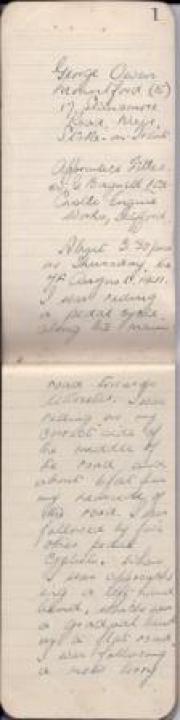 1
George Owen
Mountford (15)
17
Road, Meir,
Stoke-on-Trent.
Apprentice Fitter
Bagnall Ltd
Castle Engine
Works, Stafford.
About 3.30 pm
on Thursday, the
August,
I was riding
a pedal cycle
along the main
road towards
I was
riding on my
correct side of
the middle of
the road and
about 6 feet from
my nearside of
the road. I was
followed by five
other pedal
cyclists. When
I was approach
ing a left hand
bend, which was
a gradual bend
on a flat road.
I was following
a motor lorry